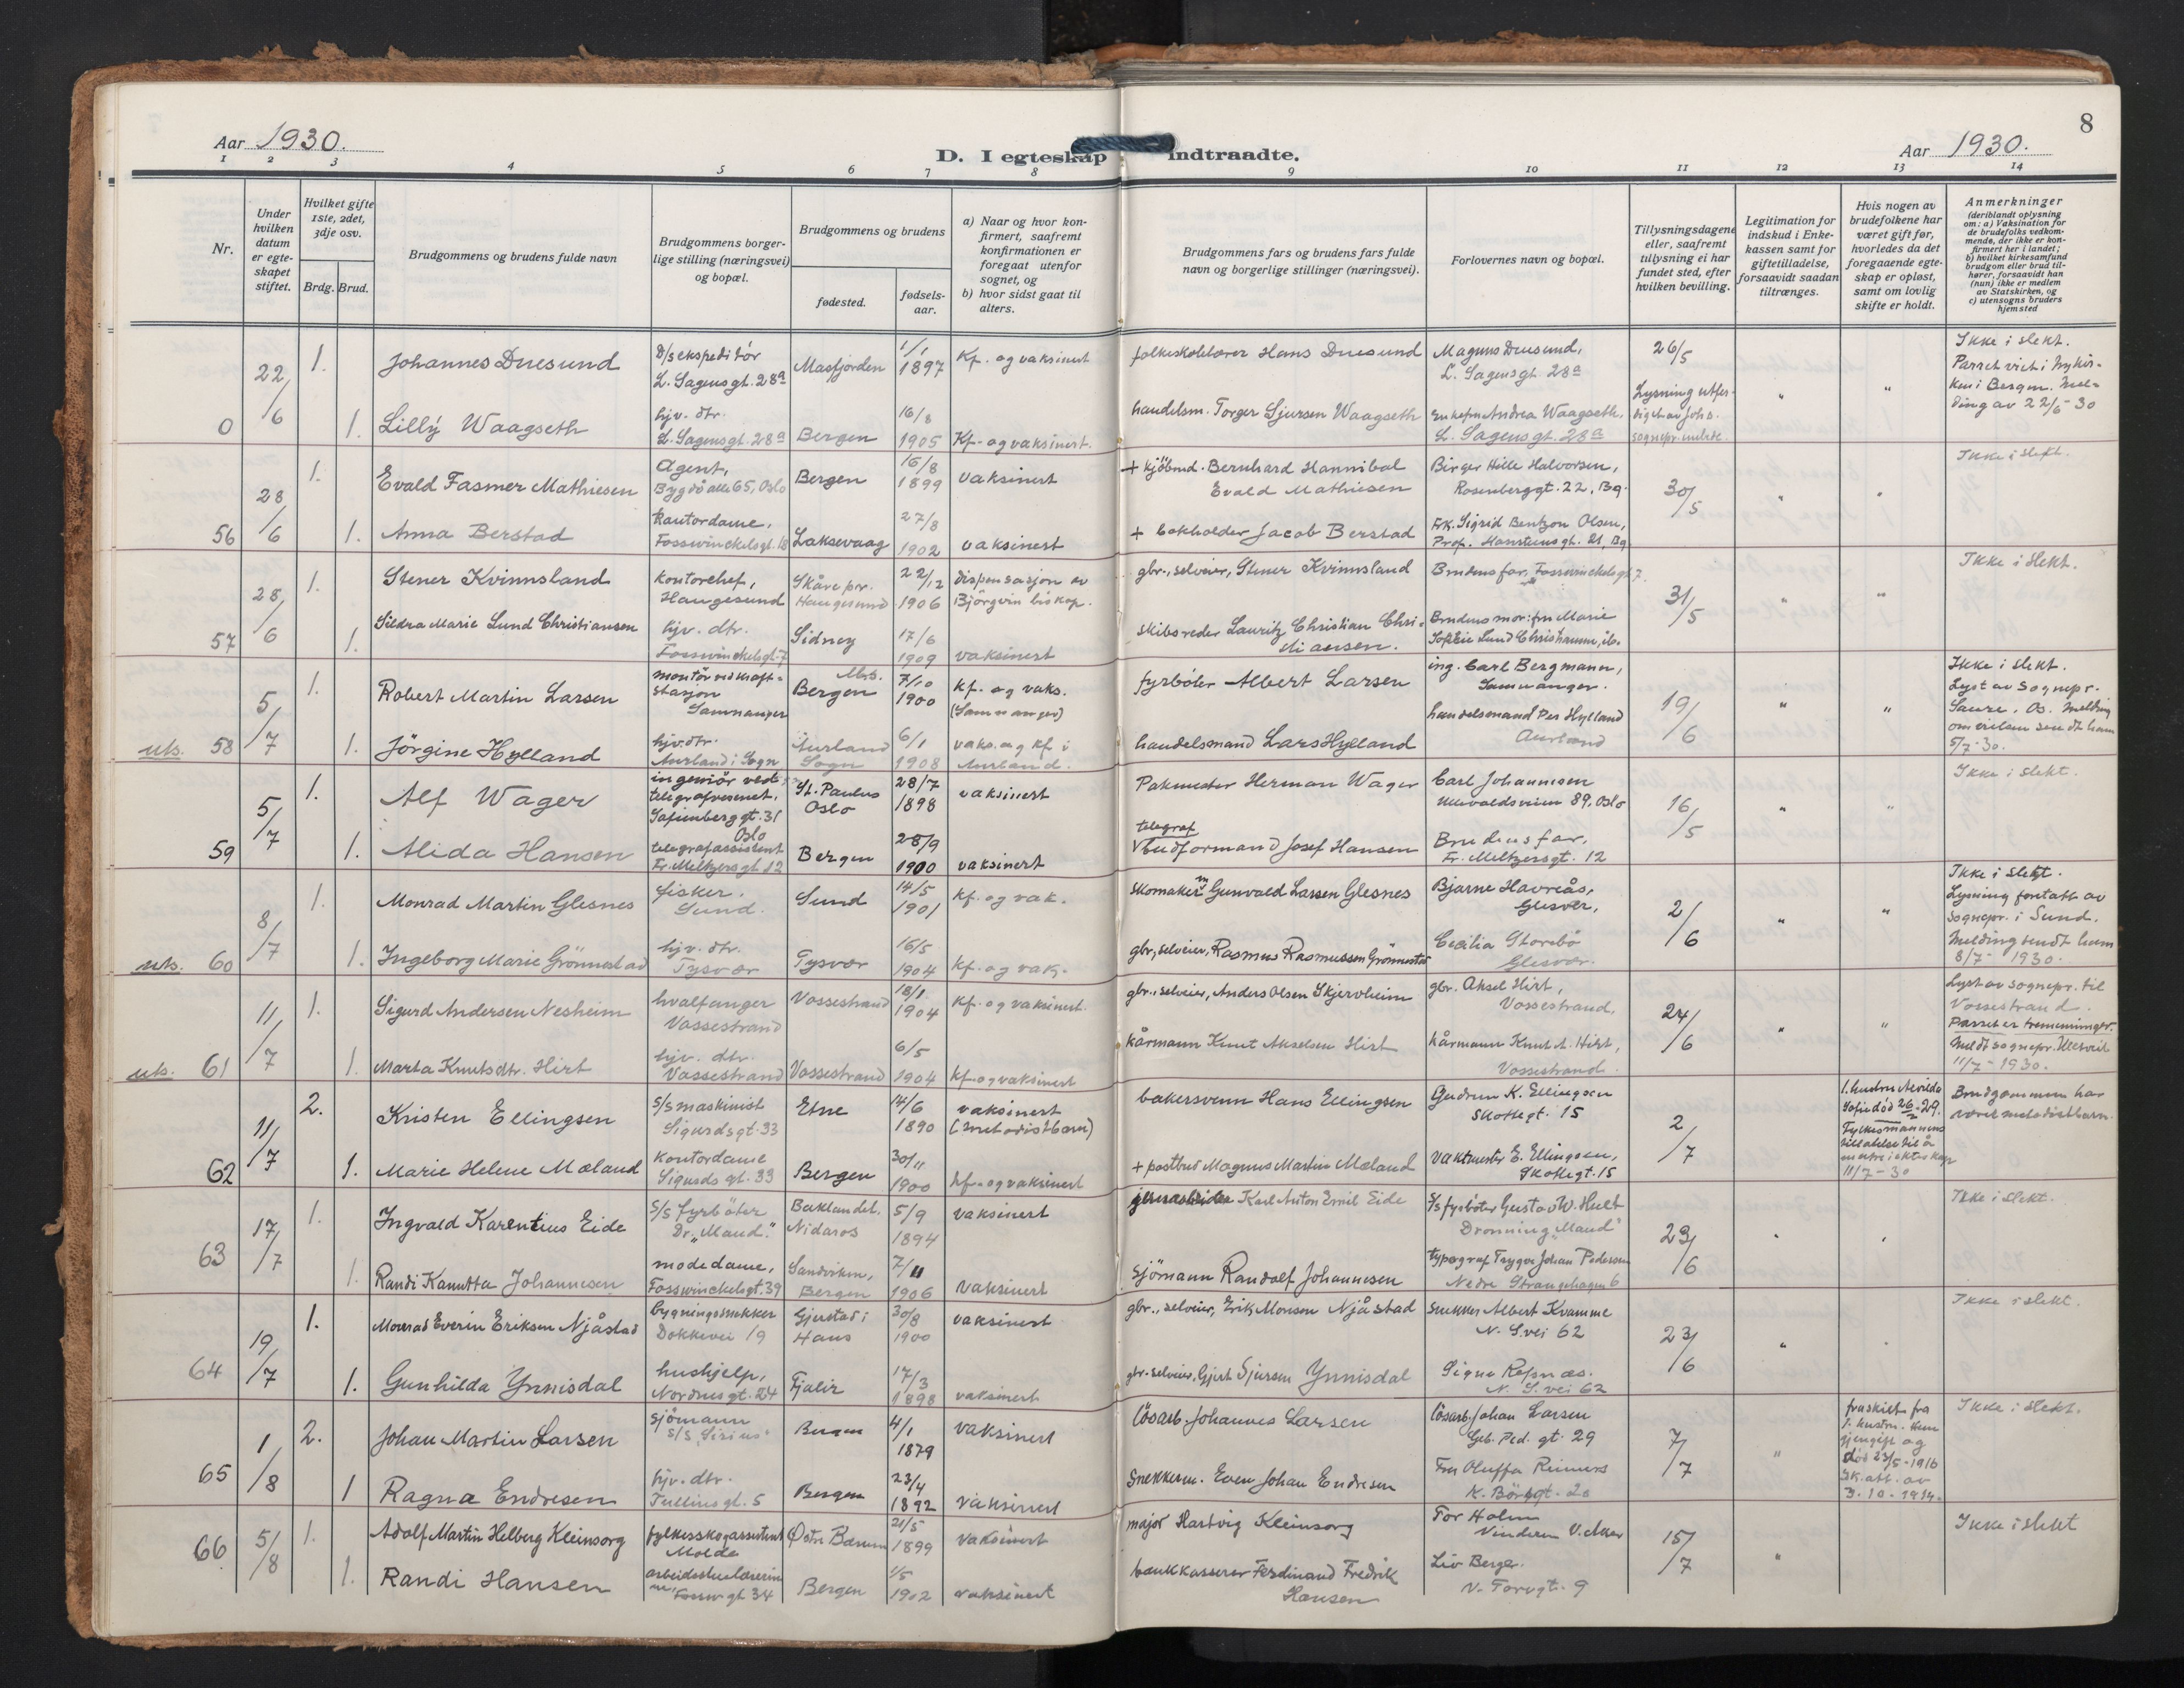 Aar 1930.
D. I egteskap indtraadte.
8
Aar 1930.
1 2 3 4 5 6 7 8 9 10 11 12 13 14
Nr.
Under hvilken datum er egteskapet stiftet.
Hvilket gifte 1ste, 2det, 3dje osv.
Brdg. Brud.
Brudgommens og brudens fulde navn
Brudgommens borgerlige stilling (næringsvei) og bopæl.
Brudgommens og brudens
fødested.
fødselsaar.
a) Naar og hvor konfirmert, saafremt konfirmationen er foregaat utenfor sognet, og
b) hvor sidst gaat til alters.
Brudgommens fars og brudens fars fulde navn og borgerlige stillinger (næringsvei).
Forlovernes navn og bopæl.
Tillysningsdagene eller, saafremt tillysning ei har fundet sted, efter hvilken bevilling.
Legitimation for indskud i Enkekassen samt for giftetilladelse, forsaavidt saadan tiltrænges.
Hvis nogen av brudefolkene har været gift før, hvorledes da det foregaaende egteskap er opløst, samt om lovlig skifte er holdt.
Anmerkninger
(deriblandt oplysning om: a) Vaksination for de brudefolks vedkommende, der ikke er konfirmert her i landet; b) hvilket kirkesamfund brudgom eller brud tilhører, forsaavidt han (hun) ikke er medlem av Statskirken, og c) utensogns bruders hjemsted
0 22/6 1. Johannes Duesund D/s ekspeditör L. Sagensgt. 28a Masfjorden 1/1 1897 Kf. og vaksinert folkeskolelærer Hans Duesund Magnus Duesund, L. Sagensgt. 28a 26/5 Lysning utferdiget av Johs. sognepr. " " Ikke i slekt. Parret viet i Nykirken i Bergen. Melding av 22/6-30
1. Lilly Waagseth hjv. dtr. L. Sagensgt. 28a Bergen 16/8 1905 Kf. og vaksinert. handelsm. Torger Sjursen Waagseth Enkefru Andrea Waagseth, L. Sagensgt. 28a
56 28/6 1. Evald Fasmer Mathiesen Agent, Bygdö alle 65, Oslo Bergen 16/8 1899 vaksinert + kjöbmd. Bernhard Hannibal Evald Mathiesen Birger Hille Halvorsen, Rosenberggt. 22, Bg. 30/5 " " Ikke i slekt.
1. Anna Berstad Kontordame, Fosswinckelsgt. 18 Laksevaag 27/8 1902 vaksinert + bokholder Jacob Berstad Frk. Sigrid Bentzon Olsen, Prof. Hansteensgt. 21, Bg
57 28/6 1. Stener Kvinnsland Kontorchef, Haugesund Skåre pr. Haugesund 22/12 1906 dispensasjon av Björgvin biskop. gbr., selveier, Stener Kvinnsland Brudens far, Fosswinckelsgt 7. 31/5 " " Ikke i slekt.
1. Sildra Marie Lund Christiansen hjv. dtr. Fosswinckelsgt. 7 Sidney 17/6 1909 vaksinert skibsreder Lauritz Christian Christiansen. Brudens mor: fru Marie Sofie Lund Christiansen, ib.
uts. 58 5/7 1. Robert Martin Larsen montör ved kraftstasjon Samnanger Bergen 7/10 1900 kf. og vaks. (Samnanger) fyrböter Albert Larsen ing. Carl Bergmann, Samnanger. 19/6 " " Ikke i slekt. Lyst av Sognepr. Saure, Os. Melding om vielsen sendt ham 5/7-30.
1. Jörgine Hylland hjv. dtr. Aurland i Sogn Aurland Sogn 6/1 1908 vaks. og kf i Aurland. handelsmand Lars Hylland handelsmand Per Hylland Aurland
59 5/7 1. Alf Wager ingeniör ved telegrafvesenet, Sofienberggt. 31 Oslo St. Paulus Oslo 28/7 1898 vaksinert Pakmester Herman Wager Carl Johannesen Ullevaldsveien 89, Oslo 16/5 " " Ikke i slekt.
1. Alida Hansen telegrafassistent Fr. Meltzersgt 12 Bergen 28/9 1900 vaksinert telegraf budformand Josef Hansen Brudens far, Fr. Meltzersgt. 12
uts. 60 8/7 1. Monrad Martin Glesnes fisker. Sund. Sund 14/5 1901 kf. og vak. skomakerm Gunvald Larsen Glesnes Bjarne Havreås, Glesvær, 2/6 " " Ikke i slekt. Lysning foretatt av sognepr. i Sund. Melding sendt ham 8/7 1930.
1. Ingeborg Marie Grönnestad hjv. dtr. Tysvær Tysvær 16/5 1904 kf. og vak. gbr, selveier, Rasmus Rasmussen Grönnestad Cecilia Storebö Glesvær.
uts. 61 11/7 1. Sigurd Andersen Nesheim hvalfanger Vossestrand Vossestrand 18/1 1904 kf. og vaksinert. gbr., selveier, Anders Olsen Skjervheim gbr. Aksel Hirt, Vossestrand, 24/6 " " Lyst av sognepr. til Vossestrand. Parret er tremenninger. Meldt sognepr. Ullestveit 11/7-1930.
1. Marta Knutsdtr. Hirt hjv. dtr. Vossestrand Vossestrand 6/5 1904 kf. og vaksinert kårmann Knut Akselsen Hirt kårmann Knut A. Hirt, Vossestrand.
62 11/7 2. Kristen Ellingsen S/s maskinist Sigurdsgt. 33 Etne 14/6 1890 vaksinert (metodistbarn) bakersvenn Hans Ellingsen Gudrun K. Ellingsen Skottegt. 15 2/7 1. hustru död 26/2-29. Fylkesmannens tillatelse til å inntre i ekteskap 11/7-30 Brudgommen har været metodistbarn.
1. Marie Helene Mæland kontordame Sigurds gt. 33 Bergen 30/11 1900 kf. og vaksinert + postbud Magnus Martin Mæland vaktmester E. Ellingsen, Skottegt. 15
63 17/7 1. Ingvald Karentius Eide S/s fyrböter Dr. „Maud". Baklandet. Nidaros 5/9 1894 vaksinert jernarbeider Karl Anton Emil Eide S/s fyrböter Gustav W. Hult Dronning „Maud" 23/6 " " Ikke i slekt.
1. Randi Kanutta Johannesen motedame, Fosswinckelsgt. 39 Sandviken, Bergen 7/11 1906 vaksinert Sjömann Randolf Johannesen typograf Trygve Johan Pedersen Nedre Strangehagen 6
64 19/7 1. Monrad Everin Eriksen Njåstad bygningssnekker Dokkevei 19 Gjerstad i Haus 30/8 1900 vaksinert gbr., selveier, Erik Monsen Njåstad Snekker Albert Kvamme N. S. vei 62 23/6 " " Ikke i slekt.
1. Gunhilda Ynnisdal hushjelp, Nordnesgt. 24 Fjaler 17/3 1898 vaksinert gbr. selveier, Gjert Sjursen Ynnisdal Signe Refsnæs. N. S. vei 62
65 1/8 2. Johan Martin Larsen sjömann S/S „Sirius" Bergen 4/1 1879 vaksinert lösarb. Johannes Larsen lösarb. Johan Larsen Geb. Ped. gt. 29 7/7 " fraskilt fra 1. hustru. Hun gjengift og död 23/5-1916 Sk. att. av 3-10-1914. Ikke i slekt.
1 Ragna Endresen hjv. dtr. Tulliusgt. 5 Bergen 23/4 1892 vaksinert Snekkerm. Even Johan Endresen Fru Oluffa Reimers K. Börsgt. 20
66 5/8 1. Adolf Martin Helberg Kleinsorg fylkesskogassistent Molde Østre Bærum 21/5 1899 vaksinert major Hartvig Kleinsorg Tor Holm Vinderen V. Aker 15/7 " Ikke i slekt
1. Randi Hansen Fossw. gt. 34 Bergen 1/5 1902 vaksinert bankkasserer Ferdinand Fredrik Hansen Liv Berger. V. Torvgt. 9